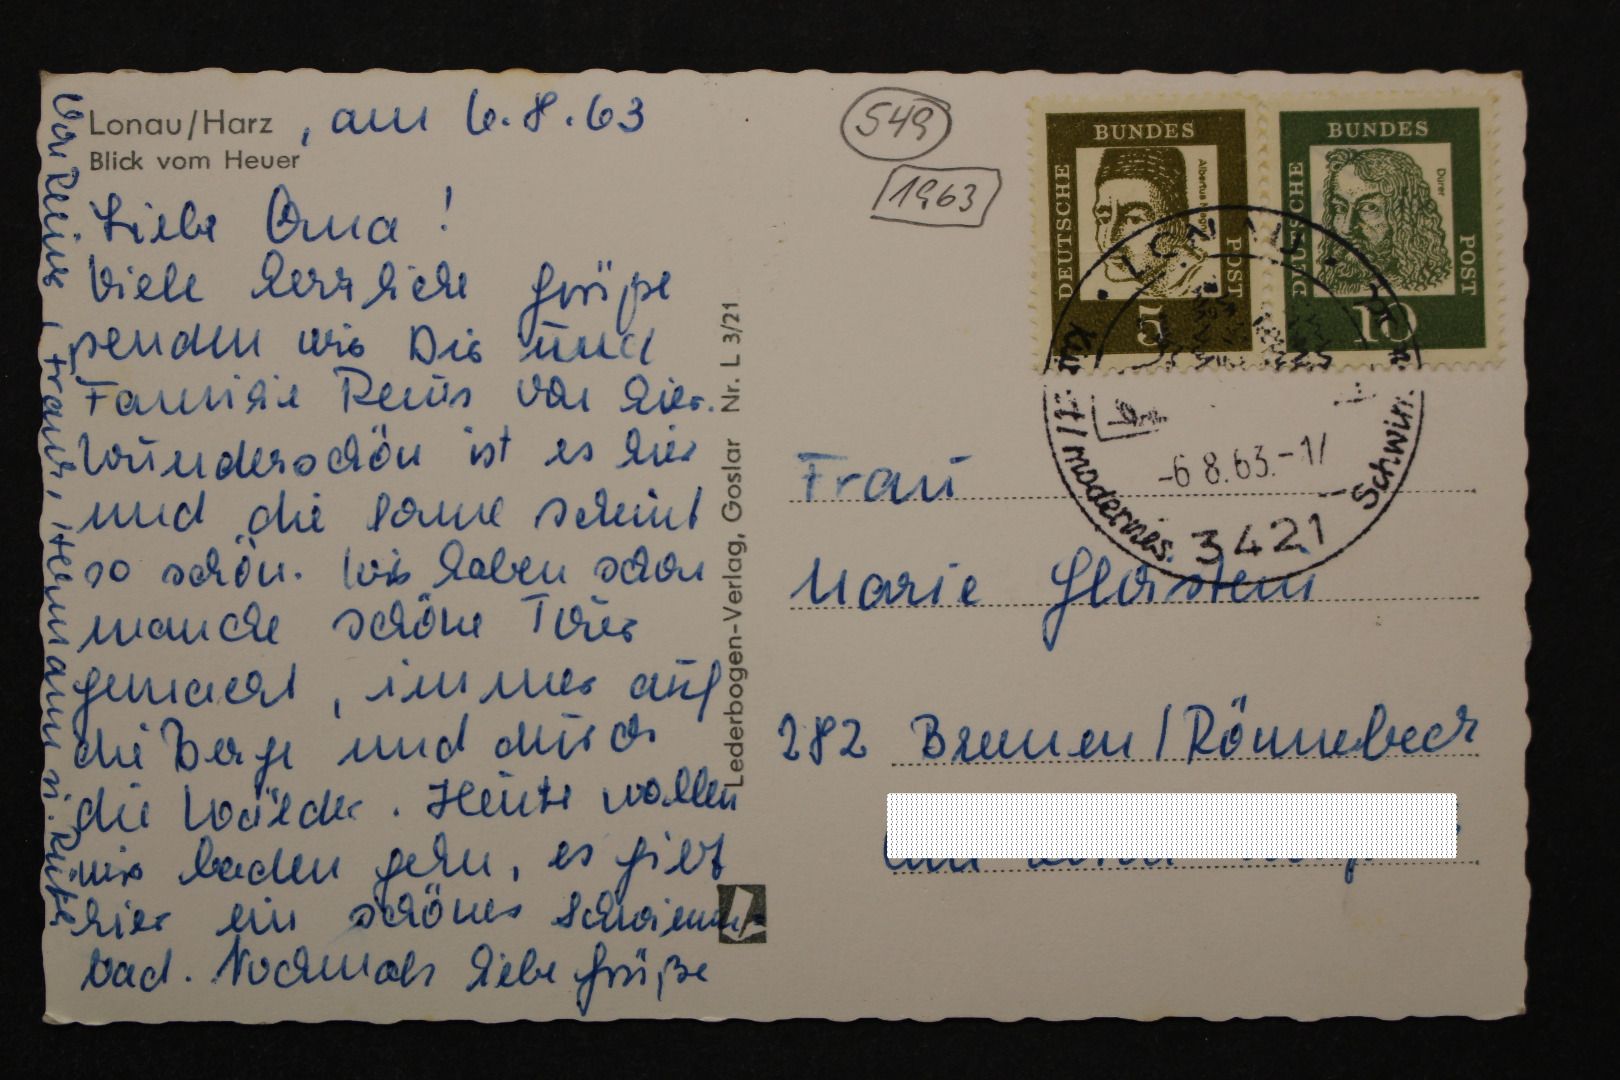 Lonau/Harz , am 6.8.63
Blick vom Heuer
Liebe Oma!
Viele herzliche Grüße
senden wir Dir und
Familie Reins von hier.
Wunderschön ist es hier
und die Sonne scheint
so schön. Wir haben schon
manche schöne Tour
gemacht, immer auf
die Berge und durch
die Wälder. Heute wollen
wir baden gehn, es gibt
hier ein schönes Schwimm-
bad. Nochmals liebe Grüße
von Reins, Frank, Hermann u. Rute
Lederbogen-Verlag, Goslar Nr. L 3/21
549
1963
DEUTSCHE BUNDES POST
Albertus Magnus
5
DEUTSCHE BUNDES POST
Dürer
10
LONAU
-6.8.63.-17
modernes Schwim
3421
Frau
Marie
282 Bremen/Rönnebeck